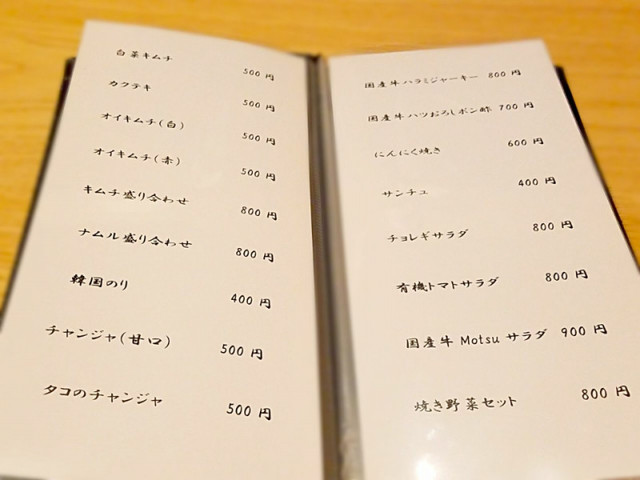 白菜キムチ 500 円
カクテキ 500 円
オイキムチ(白) 500 円
オイキムチ(赤) 500 円
キムチ盛り合わせ 800 円
ナムル盛り合わせ 800 円
韓国のり 400 円
チャンジャ(甘口) 500 円
タコのチャンジャ 500 円
国産牛ハラミジャーキー 800 円
国産牛ハツおろしポン酢 700 円
にんにく焼き 600 円
サンチュ 400 円
チョレギサラダ 800 円
有機トマトサラダ 800 円
国産牛 Motsu サラダ 900 円
焼き野菜セット 800 円